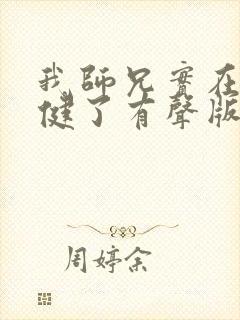 我師兄實在
健了有聲版
周婷余